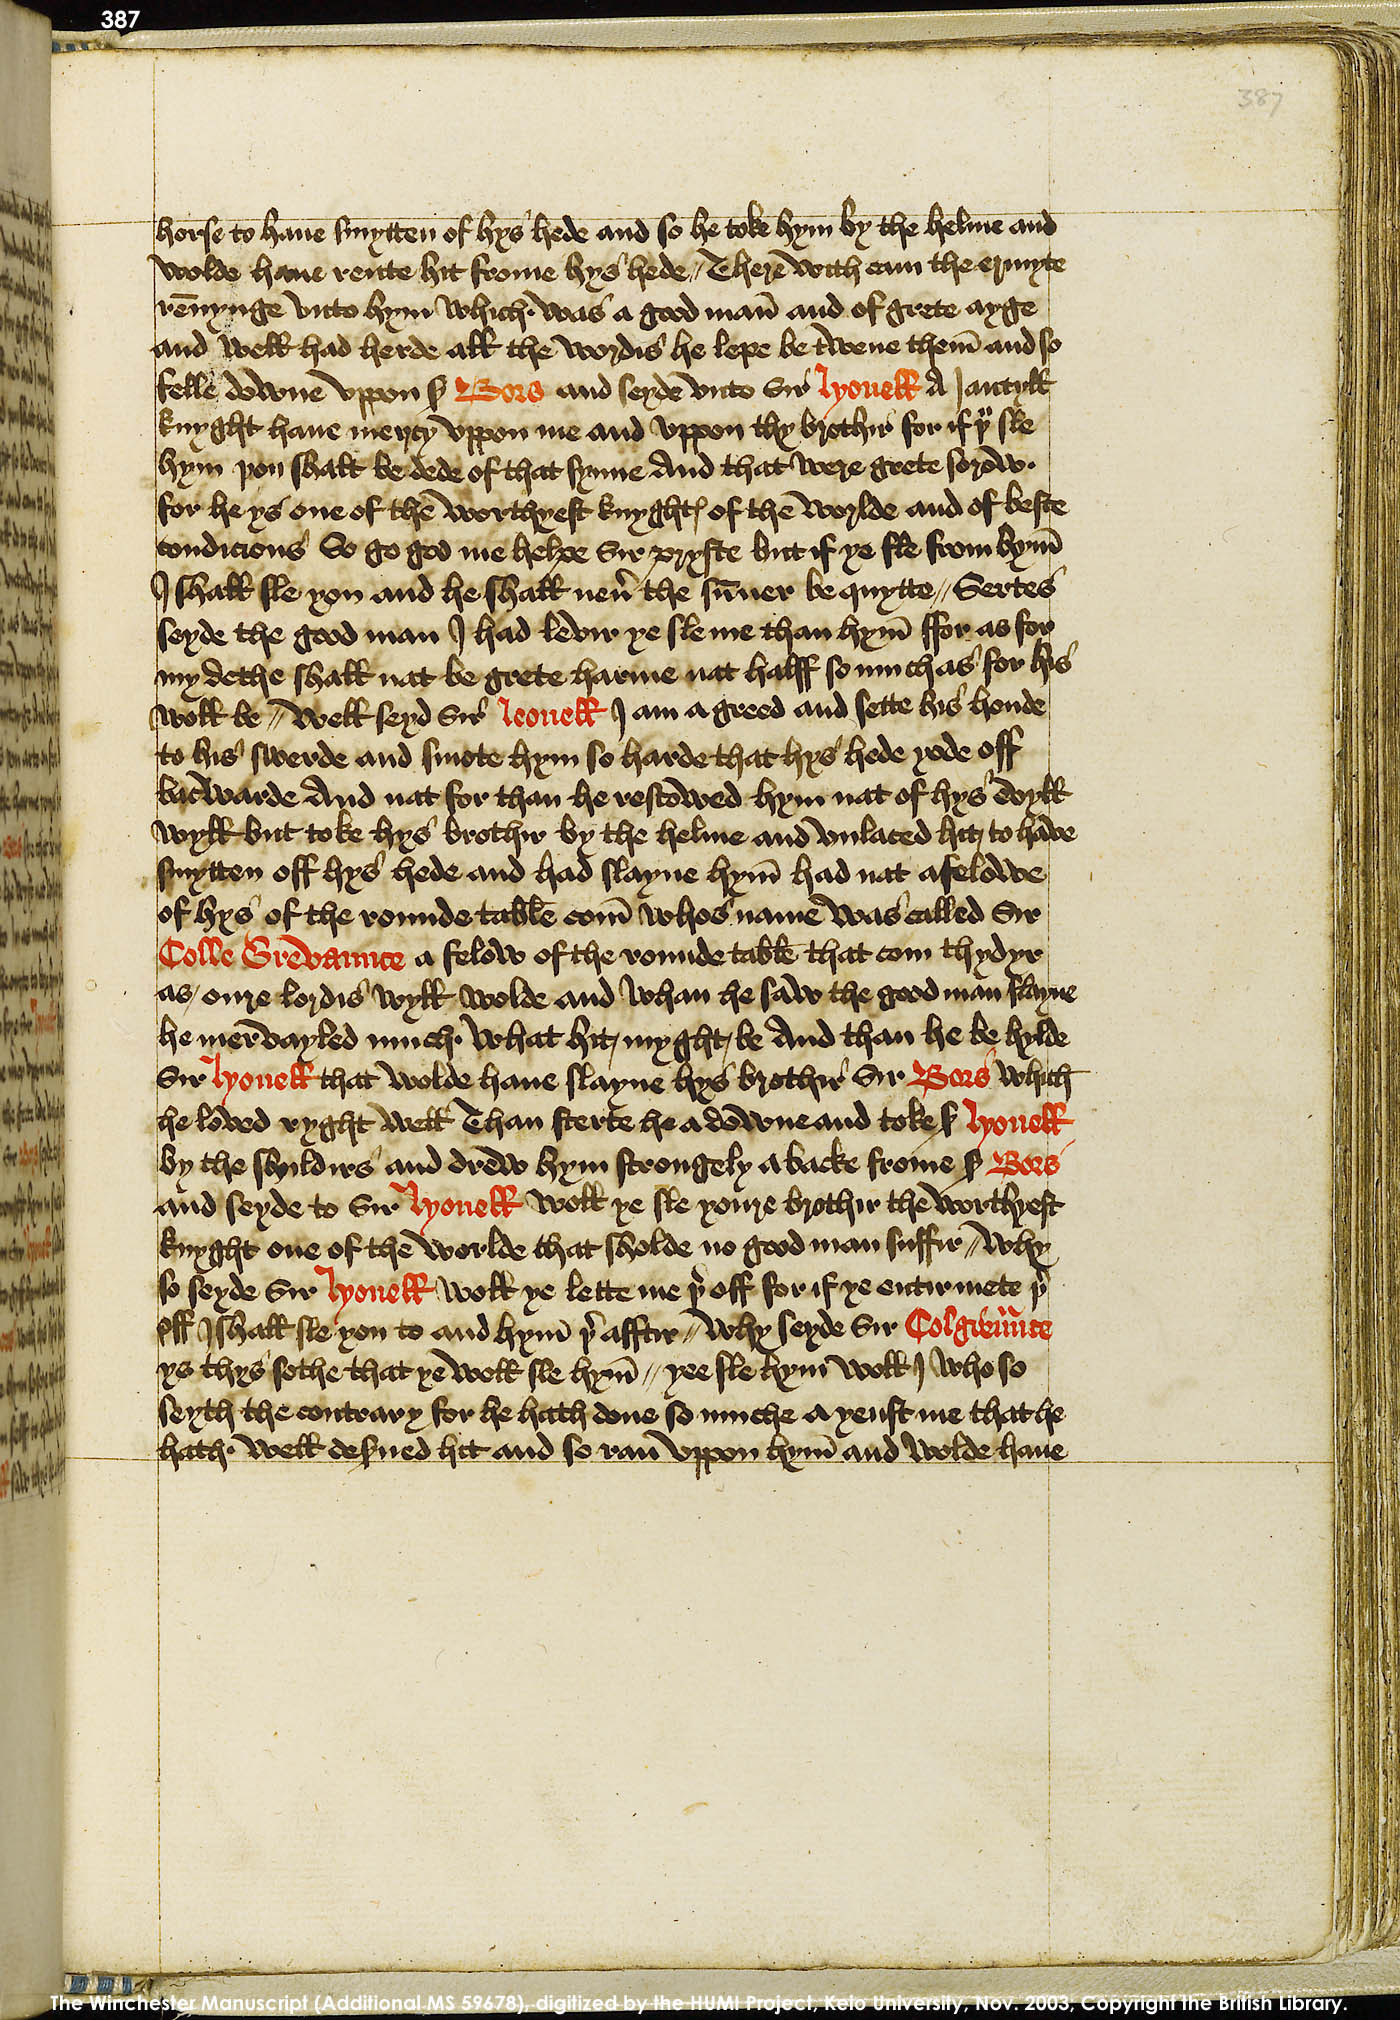 387
387
horse to haue smytten of hys hede and so he toke hym by the helme and
wolde haue rente hit frome hys hede // There with cam the ermyte
rēnynge vnto hym which · was a good man̄ and of grete ayge
and well had herde all the wordis he lepe be twene them̄ and so
felle downe vppon ẜ Bors and seyde vnto Sir lyonell A Jantyll
knyght haue mercy vppon me and vppon thy brothir for if þu sle
hym you shalt be dede of that synne And that were grete sorow ·
for he ys one of the worthyest knyghtꝭ of the worlde and of beste
condicions So go god me helpe Sir pryste but if ye fle from hym̄
I shall sle you and he shall neu̾ the sūner be quytte // Sertes
seyde the good man I had levir ye sle me than hym̄ ffor as for
my dethe shall nat be grete harme nat halff so much as for his
woll be // Well seyd Sir leonell I am a greed and sette his honde
to his swerde and smote hym so harde that hys hede yode off
bacwarde And nat for than he restowed hym nat of hys evyll
wyll but toke hys brothir by the helme and vnlaced hit to have
smytten off hys hede and had slayne hym̄ had nat a felowe
of hys of the rounde table com̄ whos name was called Sir
Colle Grevaunce a felow of the rounde table that com thydyr
as / oure lordis wyll wolde and whan he saw the good man slayne
he mervayled much · what hit myght be And than he be hylde
Sir lyonell that wolde haue slayne hys brothir Sir Bors which
he loved ryght well Than sterte he a downe and toke ẜ lyonell
by the shuldirs and drew hym strongely a backe frome ẜ Bors
and seyde to Sir lyonell woll ye sle youre brothir the worthyest
knyght one of the worlde that sholde no good man suffir // Why
so seyde Sir lyonell woll ye lette me þ̾ off for if ye entirmete þ̾
off I shall sle you to and hym̄ þ̾ afftir // Why seyde Sir Colgreūnce
ys thys sothe that ye woll sle hym̄ // yee sle hym woll I who so
seyth the contrary for he hath done so muche a yenst me that he
hath · well desꝭued hit and so ran vppon hym̄ and wolde haue
The Winchester Manuscript (Additional MS 59678), digitized by the HUMI Project, Keio University, Nov. 2003, Copyright the British Library.